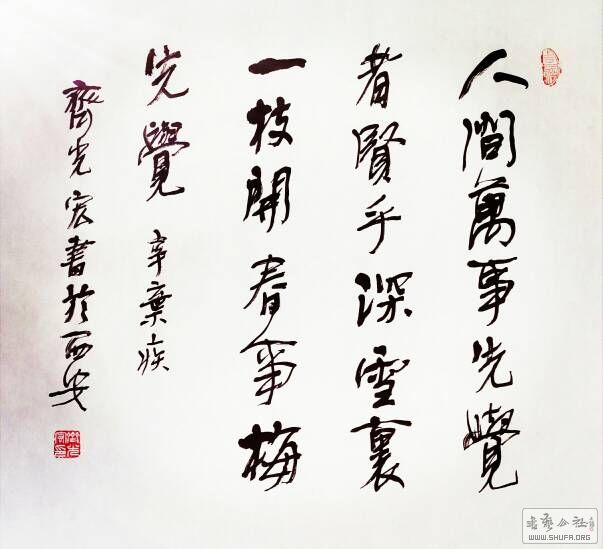 人間萬事先覺
者賢乎深雪裏
一枝開春事梅
先覺 辛棄疾
齊光宏書於西安
WWW.SHUFA.ORG